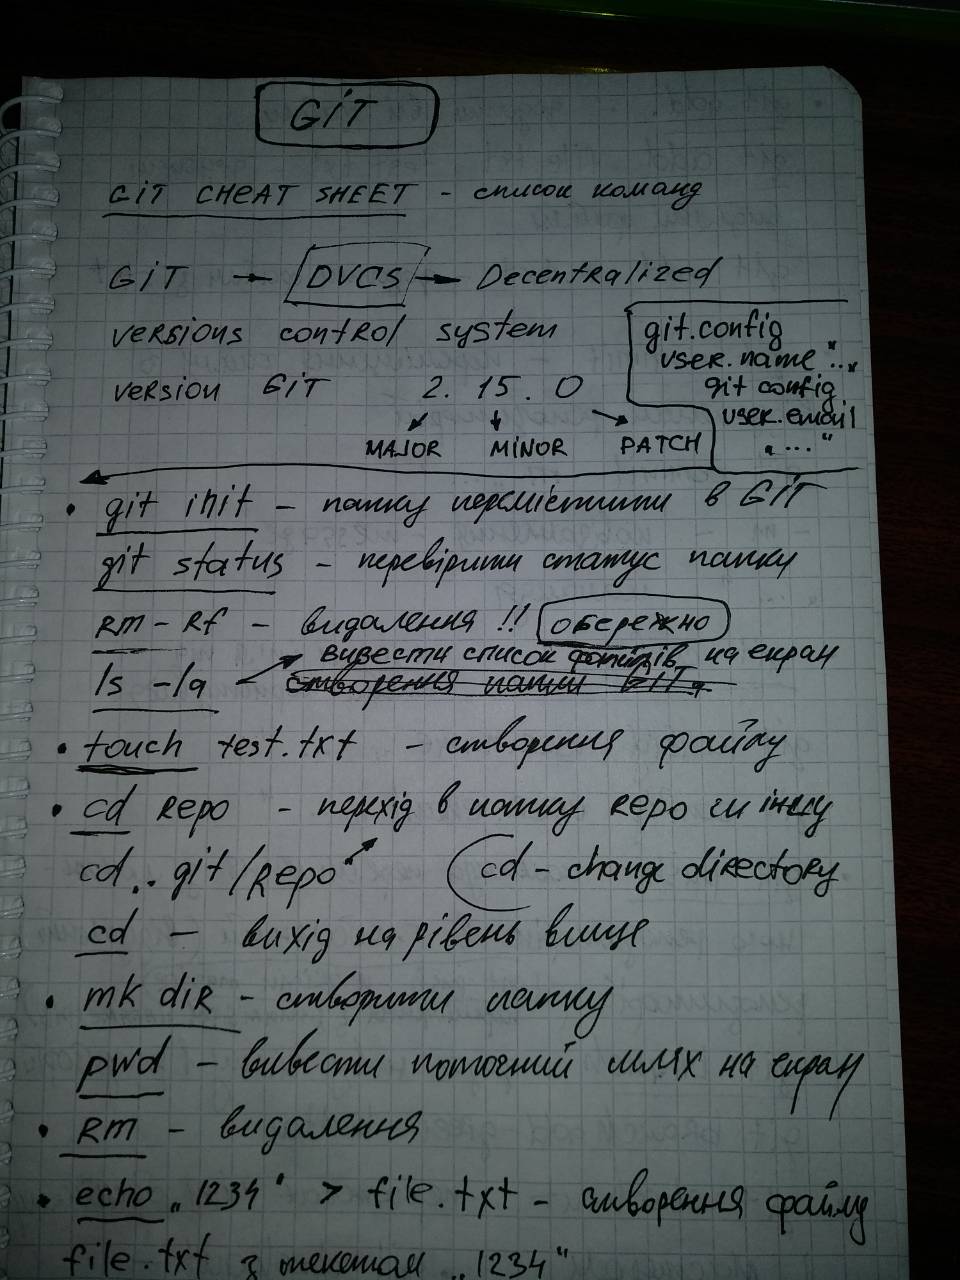 GIT
GIT CHEAT SHEET - список команд
GIT → DVCS → Decentralized
versions control system
version GIT 2. 15. 0
MAJOR MINOR PATCH
git.config
user.name "...
git config
user.email
„ ..."
• git init - папку перемістити в GIT
git status - перевірити статус папки
rm - rf - видалення !! обережно
ls -la → вивести список файлів на екран
створення папки GIT
• touch test.txt - створення файлу
• cd repo - перехід в папку repo чи іншу
cd .. git/repo" cd - change directory
cd - вихід на рівень вище
• mk dir - створити папку
pwd - вивести поточний шлях на екран
• rm - видалення
• echo „1234" > file.txt - створення файлу
file.txt з текстом „1234"